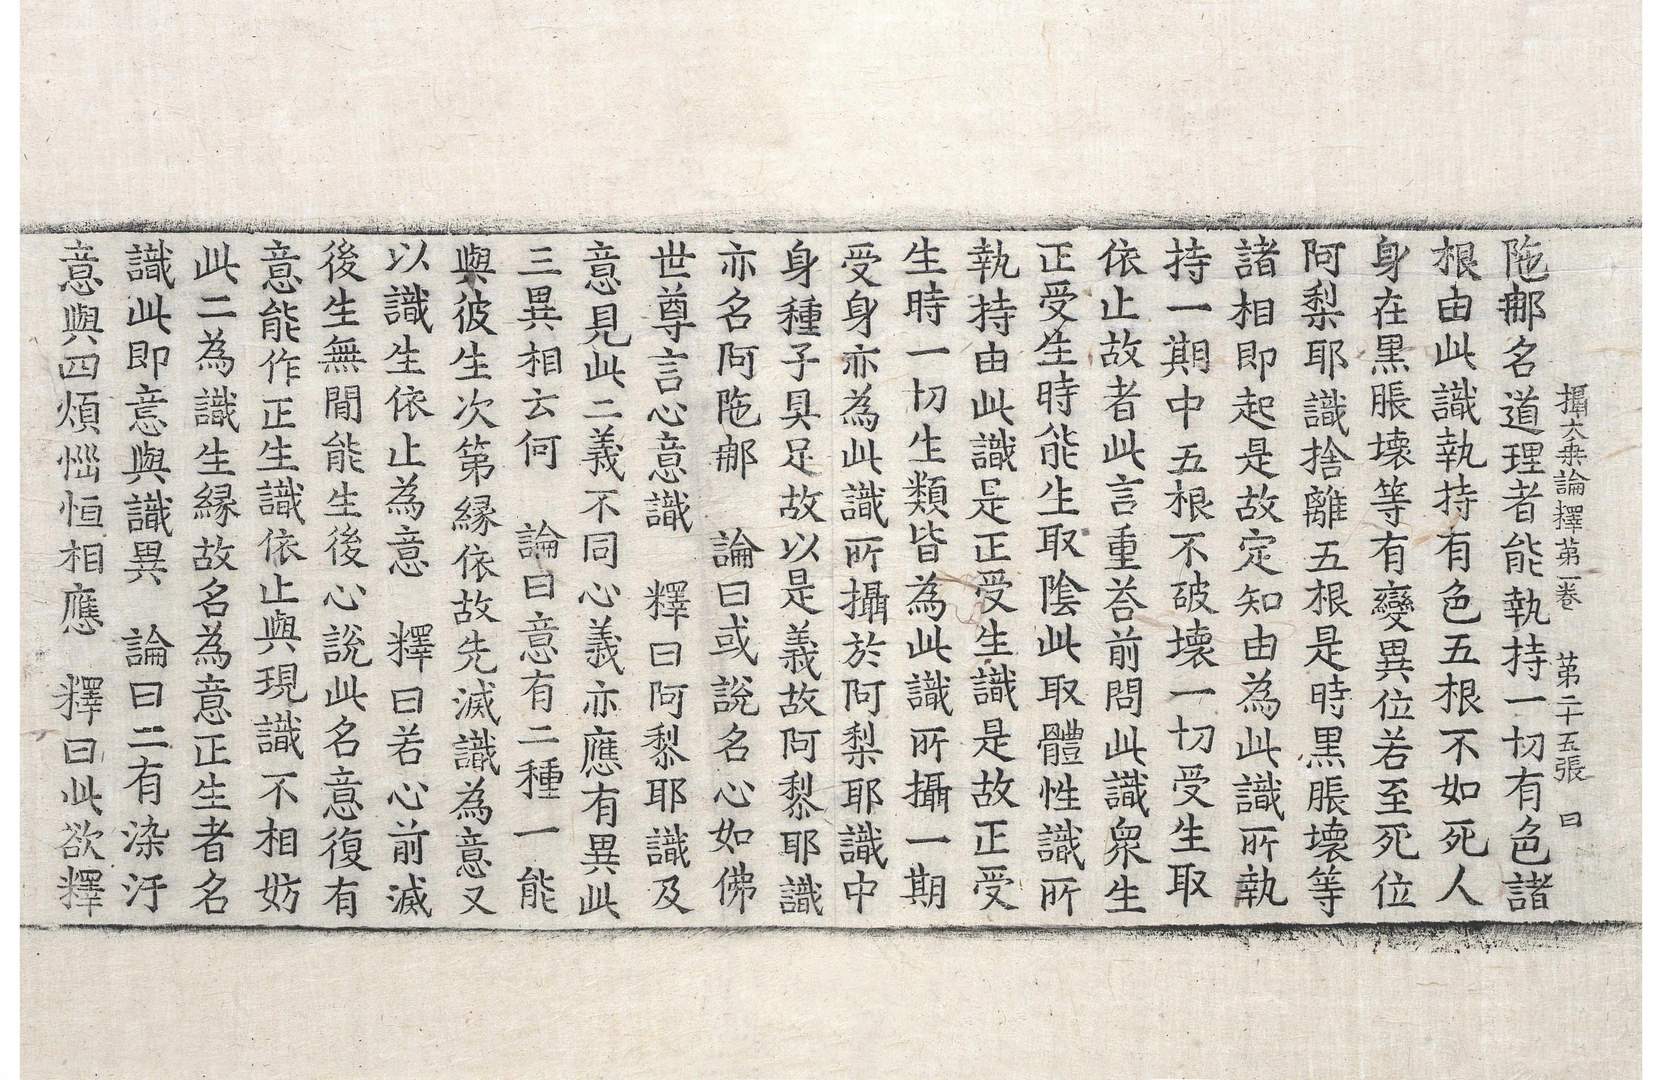 攝大乗論釋第一卷　第二十五張　曰
陁那名道理者能執持一切有色諸
根由此識執持有色五根不如死人
身在黑脹壞等有變異位若至死位
阿梨耶識捨離五根是時黑脹壞等
諸相即起是故定知由為此識所執
持一期中五根不破壞一切受生取
依止故者此言重荅前問此識衆生
正受生時能生取陰此取體性識所
執持由此識是正受生識是故正受
生時一切生類皆為此識所攝一期
受身亦為此識所攝於阿梨耶識中
身種子具足故以是義故阿黎耶識
亦名阿陁那　論曰或說名心如佛
世尊言心意識　釋曰阿黎耶識及
意見此二義不同心義亦應有異此
三異相云何　論曰意有二種一能
與彼生次第縁依故先滅識為意又
以識生依止為意　釋曰若心前滅
後生無間能生後心說此名意復有
意能作正生識依止與現識不相妨
此二為識生縁故名為意正生者名
識此即意與識異　論曰二有染汙
意與四煩惱恒相應　釋曰此欲釋